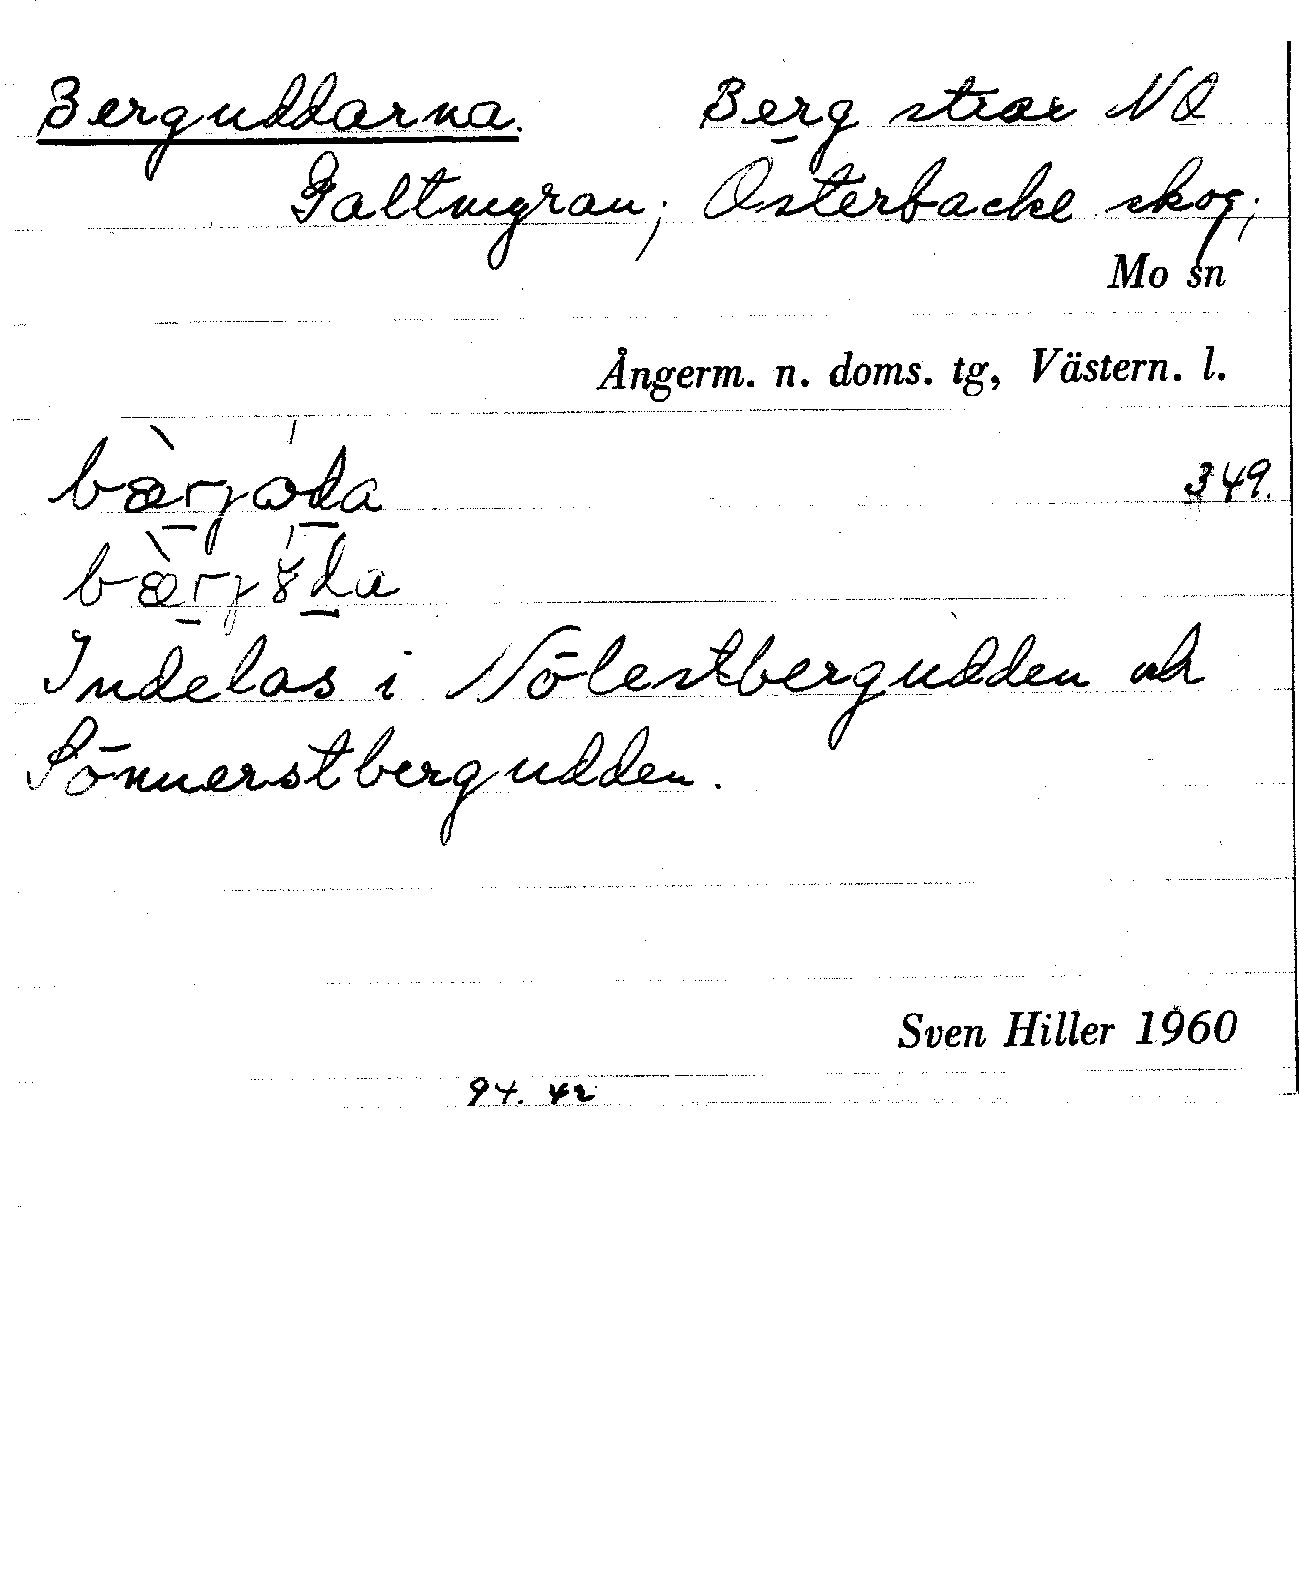 Berguddarna. Berg strax NO
Galtmyran; Österbacke skog;
Mo sn
Ångerm. n. doms. tg, Västern. l.
349.
Indelas i Nölestbergudden och
Sönnerstbergudden.
Sven Hiller 1960
94. 42